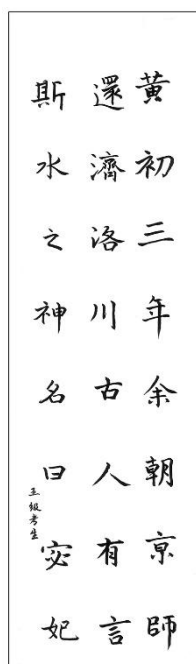 黃初三年余朝京師
還濟洛川古人有言
斯水之神名曰宓妃
五級考生